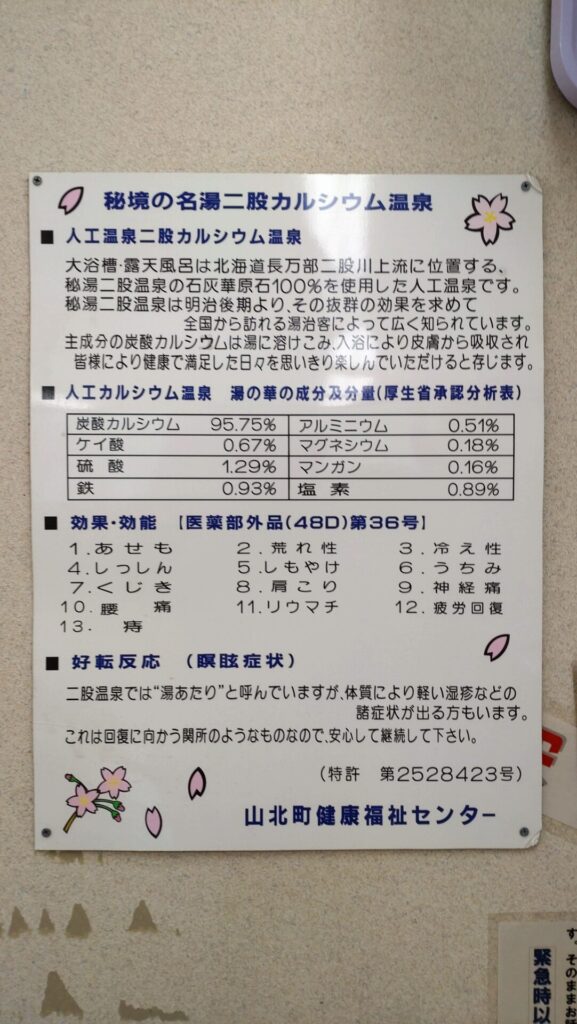 秘境の名湯二股カルシウム温泉
■ 人工温泉二股カルシウム温泉
大浴槽・露天風呂は北海道長万部二股川上流に位置する、
秘湯二股温泉の石灰華原石100%を使用した人工温泉です。
秘湯二股温泉は明治後期より、その抜群の効果を求めて
全国から訪れる湯治客によって広く知られています。
主成分の炭酸カルシウムは湯に溶けこみ、入浴により皮膚から吸収され
皆様により健康で満足した日々を思いきり楽しんでいただけると存じます。
■ 人工カルシウム温泉 湯の華の成分及分量(厚生省承認分析表)
炭酸カルシウム 95.75% アルミニウム 0.51%
ケイ酸 0.67% マグネシウム 0.18%
硫酸 1.29% マンガン 0.16%
鉄 0.93% 塩素 0.89%
■ 効果・効能 【医薬部外品(48D)第36号】
1.あせも 2.荒れ性 3.冷え性
4.しっしん 5.しもやけ 6.うちみ
7.くじき 8.肩こり 9.神経痛
10.腰痛 11.リウマチ 12.疲労回復
13.痔
■ 好転反応 (瞑眩症状)
二股温泉では“湯あたり”と呼んでいますが、体質により軽い湿疹などの
諸症状が出る方もいます。
これは回復に向かう関所のようなものなので、安心して継続して下さい。
(特許 第2528423号)
山北町健康福祉センター
す。
そのままお
緊急時以